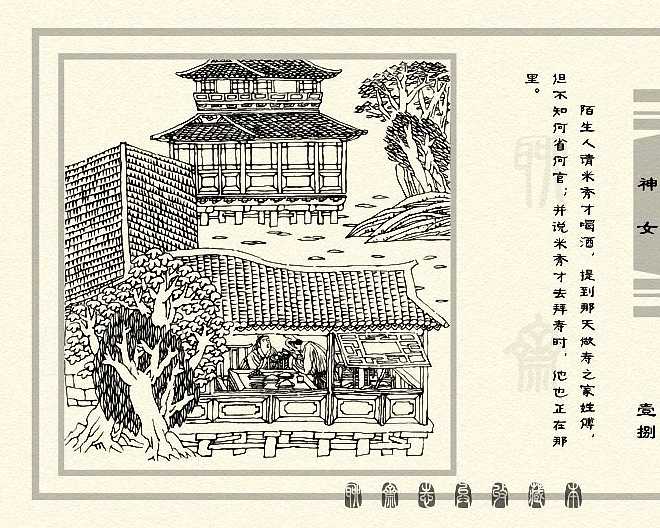 神女
壹捌
陌生人请米秀才喝酒，提到那天做寿之家姓傅，
但不知何省何官；并说米秀才去拜寿时，他也正在那
里。
聊斋
聊斋志异珍藏本